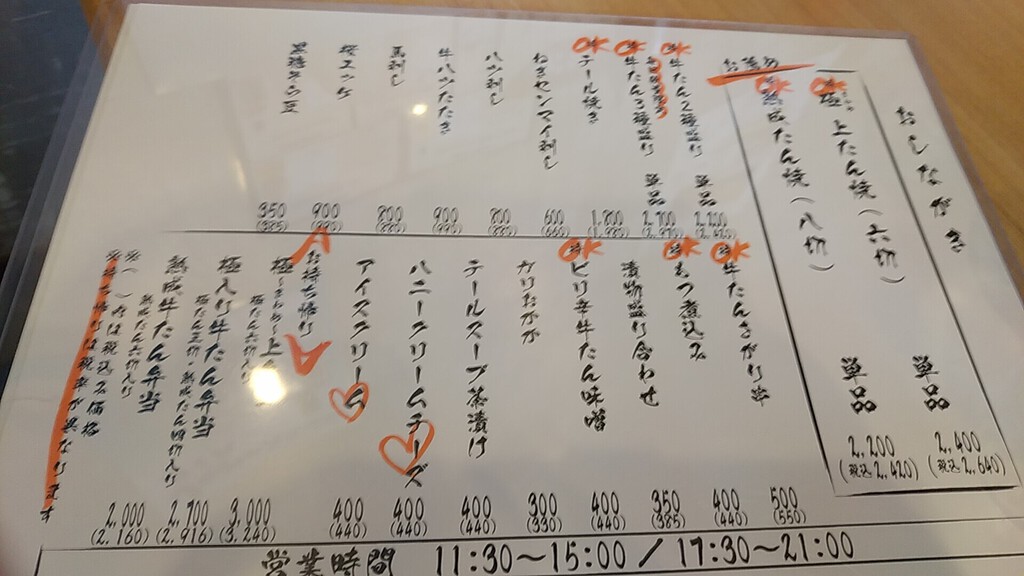 おしながき
極 上たん焼(六切) 単品 2,400 (税込2,640)
熟成たん焼(八切) 単品 2,200 (税込2,420)
牛たん2種盛り 単品 2,200 (2,420)
牛たん3種盛り 単品 2,700 (2,970)
テール焼き 1,800 (1,980)
ねぎセンマイ刺し 600 (660)
ハツ刺し 800 (880)
牛ハツたたき 900 (990)
馬刺し 800 (880)
桜ユッケ 900 (990)
黒糖そら豆 350 (385)
牛たんさがり串 500 (550)
もつ煮込み 400 (440)
漬物盛り合わせ 350 (385)
ピリ辛牛たん味噌 400 (440)
カリおかか 300 (330)
テールスープ茶漬け 400 (440)
ハニークリームチーズ 400 (440)
アイスクリーム 400 (440)
お持ち帰り
極 上 3,000 (3,240)
極入り牛たん弁当 2,700 (2,916)
極たん三切・熟成たん四切入り
熟成牛たん弁当 2,000 (2,160)
熟成たん六切入り
※( )内は税込み価格
営業時間 11:30~15:00 / 17:30~21:00